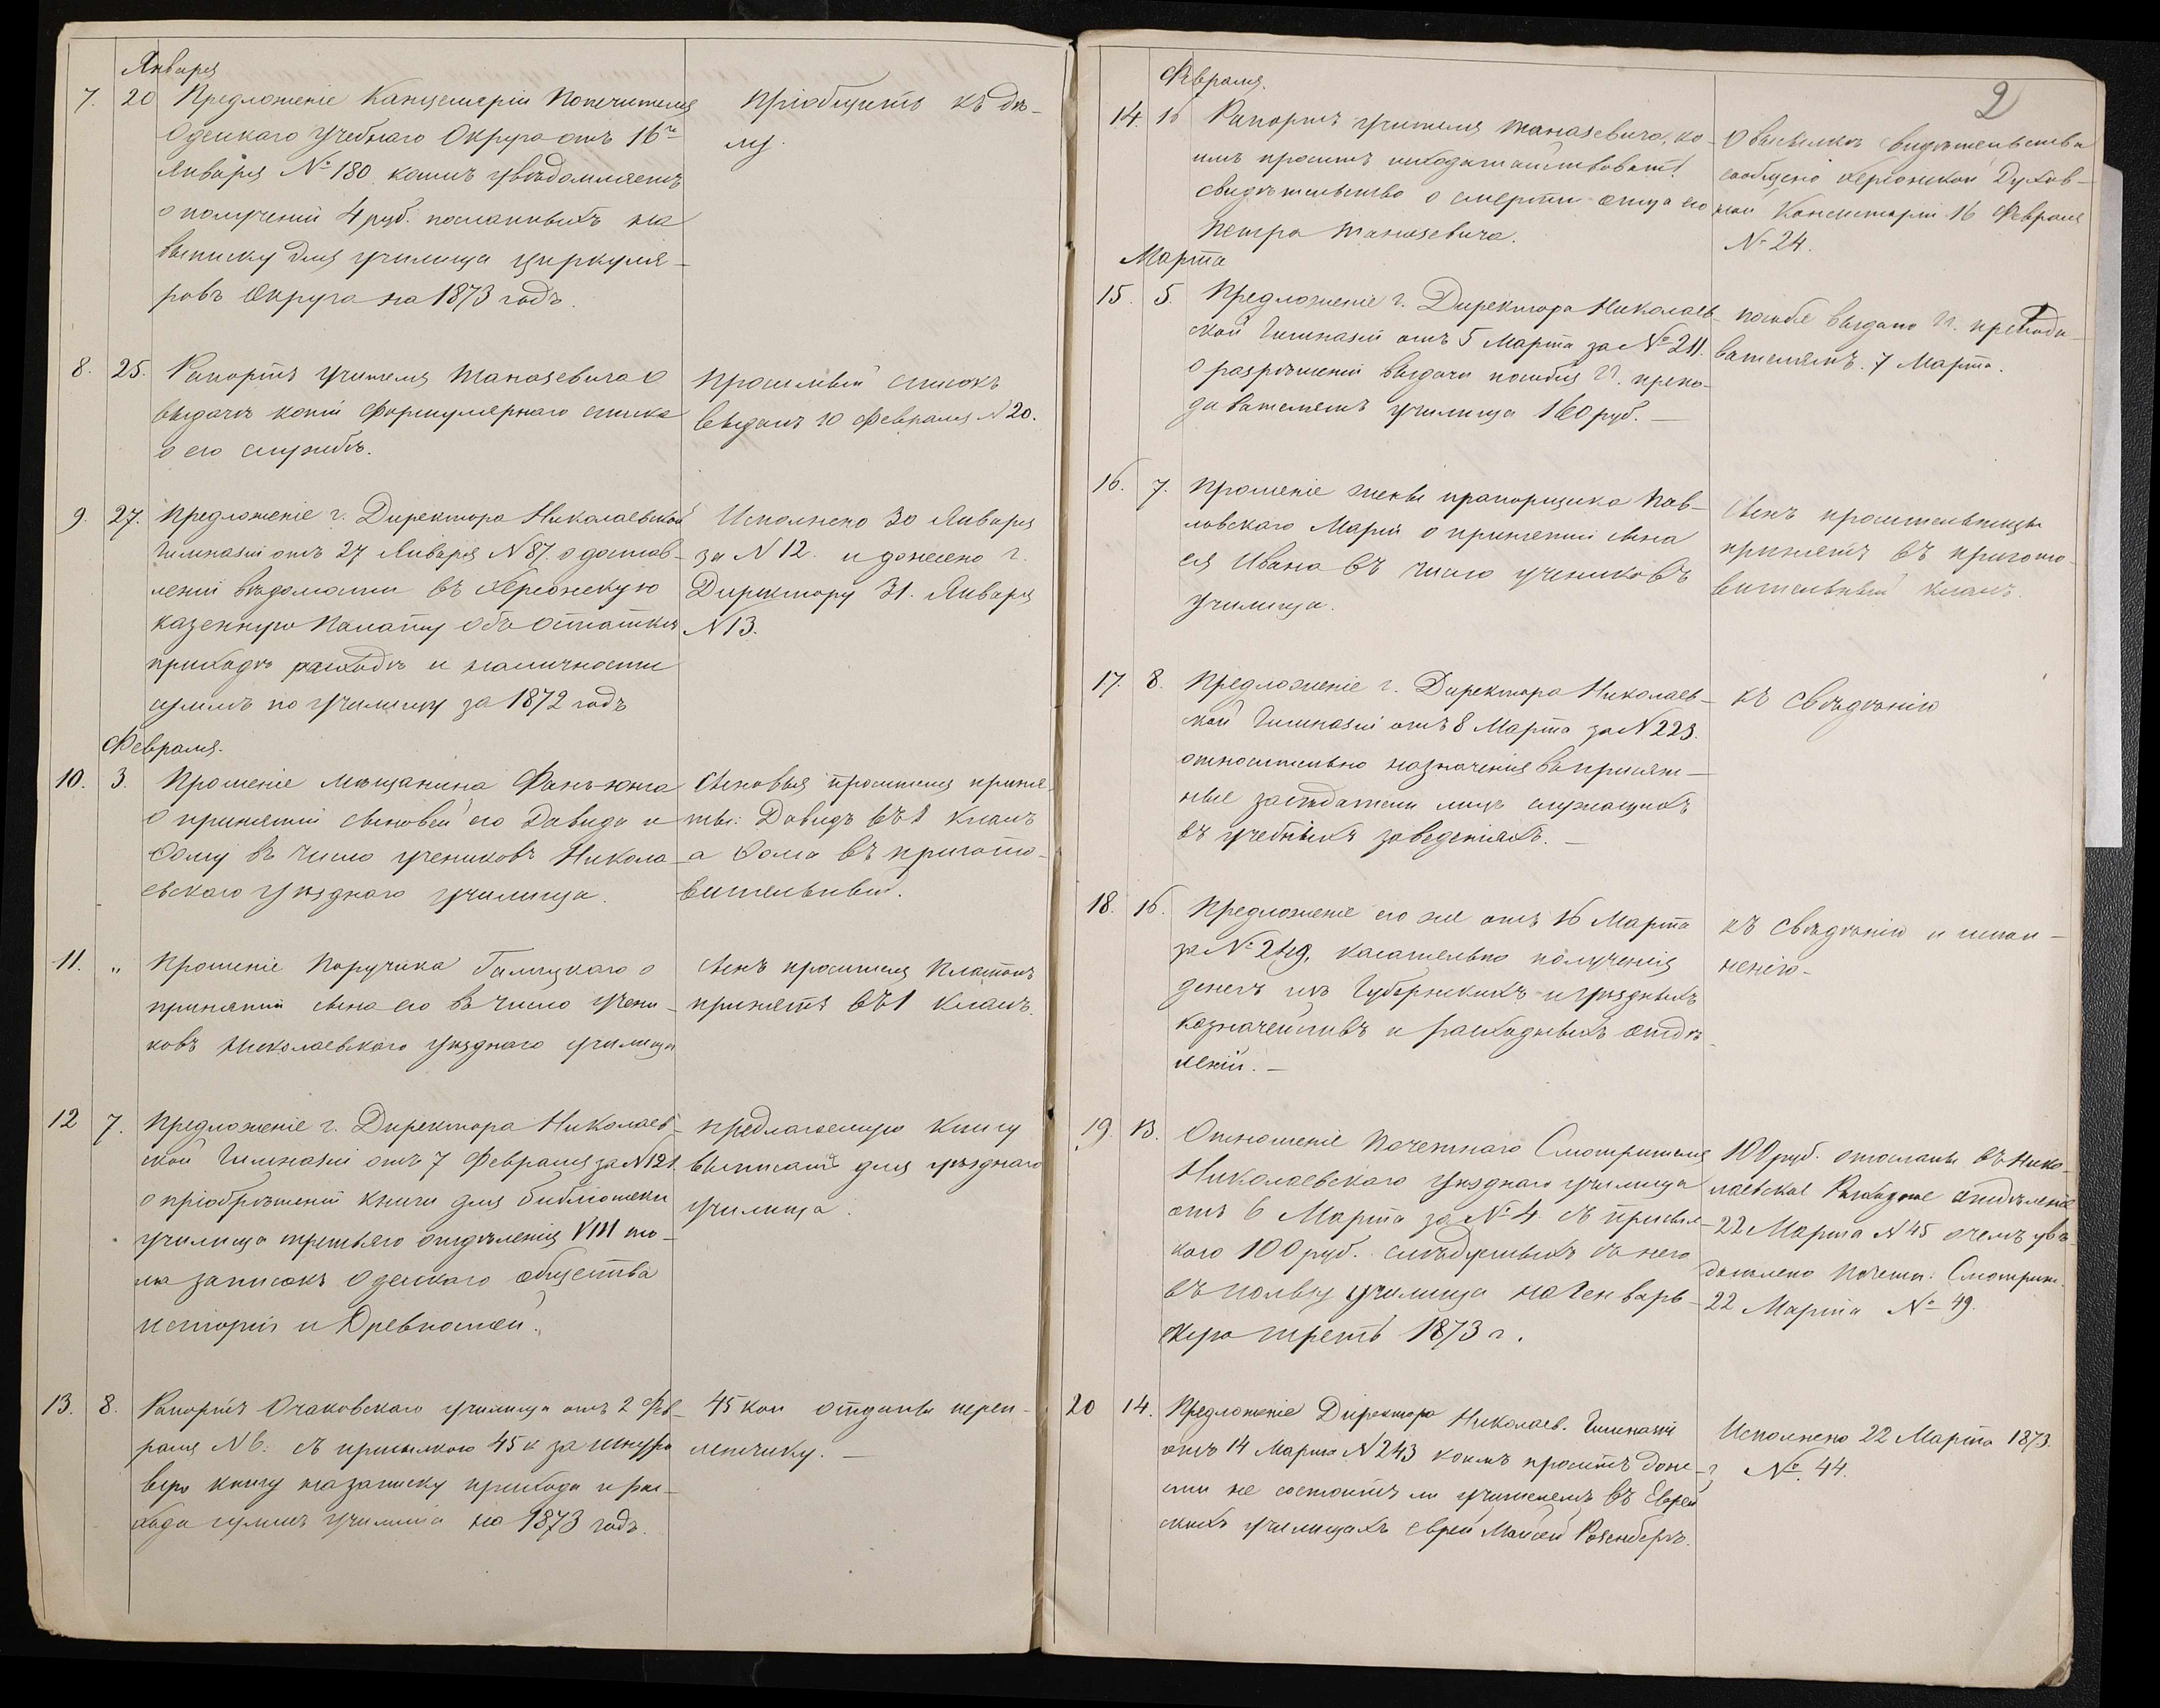 Января
7. 20 Предложеніе Канцеляріи Попечителя
Одескаго Учебнаго Округа отъ 16го
Января № 180 коимъ увѣдомляетъ
о полученіи 4 руб. посланныхъ на
выписку для училища циркуля-
ровъ Округа на 1873 годъ.
Пріобщить къ дѣ-
лу.
8. 25. Рапортъ учителя Танасевича о
выдачѣ копіи формулярнаго списка
о его службѣ.
Просимый списокъ
выданъ 10 Февраля № 20.
9. 27. Предложеніе г. Директора Николаевской
Гимназіи отъ 27 Января № 87. о достав-
леніи вѣдомости въ Херсонскую
казенную Палату объ остаткѣ
приходѣ расходѣ и наличности
суммъ по училищу за 1872 годъ
Исполнено 30 Января
за № 12. и донесено г.
Директору 31. Января
№ 13.
Февраля.
10. 3. Прошеніе мѣщанина Фанъ-Юнга
о принятіи сыновей его Давида и
Сому въ число учениковъ Никола-
евскаго уѣзднаго училища.
Сыновья просителя приня-
ты: Давидъ въ 1 классъ
а Сома въ пригото-
вительный.
11. „ Прошеніе Поручика Галицкаго о
принятіи сына его въ число учени-
ковъ Николаевскаго уѣзднаго училища
Сынъ просителя Платонъ
принятъ въ 1 классъ.
12 7. Предложеніе г. Директора Николаев-
ской Гимназіи отъ 7 Февраля за № 121.
о пріобрѣтеніи книги для библіотеки
училища третьяго отдѣленія VIII то-
ма записокъ Одескаго общества
исторіи и Древностей.
Предлагаемую книгу
выписать для уѣзднаго
училища.
13. 8. Рапортъ Очаковскаго училища отъ 2 Фев-
раля № 6. съ присылкою 45 к за шнуро
вую книгу на записку прихода и рас-
хода суммъ училища на 1873 годъ.
45 коп отданы переп-
летчику. —
2
Февраля.
14. 16 Рапортъ учителя Танасевича, ко-
имъ проситъ исходатайствовать
свидѣтельство о смерти отца его
Петра Танасевича.
О высылкѣ свидѣтельства
сообщено Херсонской Духов-
ной Консисторіи 16 Февраля
№ 24.
Марта
15. 5. Предложеніе г. Директора Николаев-
ской Гимназіи отъ 5 Марта за № 211.
о разрѣшеніи выдачи пособія гг. препо-
давателямъ училища 160 руб. —
Пособіе выдано гг. препода-
вателямъ. 7 Марта.
16. 7. Прошеніе жены прапорщика Пав-
ловскаго Маріи о принятіи сына
ея Ивана въ число учениковъ
училища.
Сынъ просительницы
принятъ въ пригото-
вительный классъ.
17. 8. Предложеніе г. Директора Николаев-
ской Гимназіи отъ 8 Марта за № 223.
относительно назначенія въ присяж-
ные засѣдатели лицъ служащихъ
въ учебныхъ заведеніяхъ. —
Къ свѣдѣнію
18. 16. Предложеніе его же отъ 16 Марта
за № 249, касательно полученія
денегъ изъ Губернскихъ и уѣздныхъ
казначействъ и расходныхъ отдѣ-
леній. —
Къ свѣдѣнію и испол-
ненію.
19. 13. Отношеніе Почетнаго Смотрителя
Николаевскаго уѣзднаго училища
отъ 6 Марта за № 4. съ присыл-
кою 100 руб. слѣдуемыхъ съ него
въ пользу училища на Генварь-
скую треть 1873 г.
100 руб. отосланы въ Нико-
лаевское Расходное отдѣленіе
22 Марта № 45 о чемъ увѣ-
домлено Почетн: Смотрит.
22 Марта № 49.
20 14. Предложеніе Директора Николаев. Гимназіи
отъ 14 Марта № 243 коимъ проситъ доне-
сти не состоитъ ли учителемъ въ Еврей
скихъ училищахъ еврей Мойсей Розенбергъ.
Исполнено 22 Марта 1873.
г № 44.